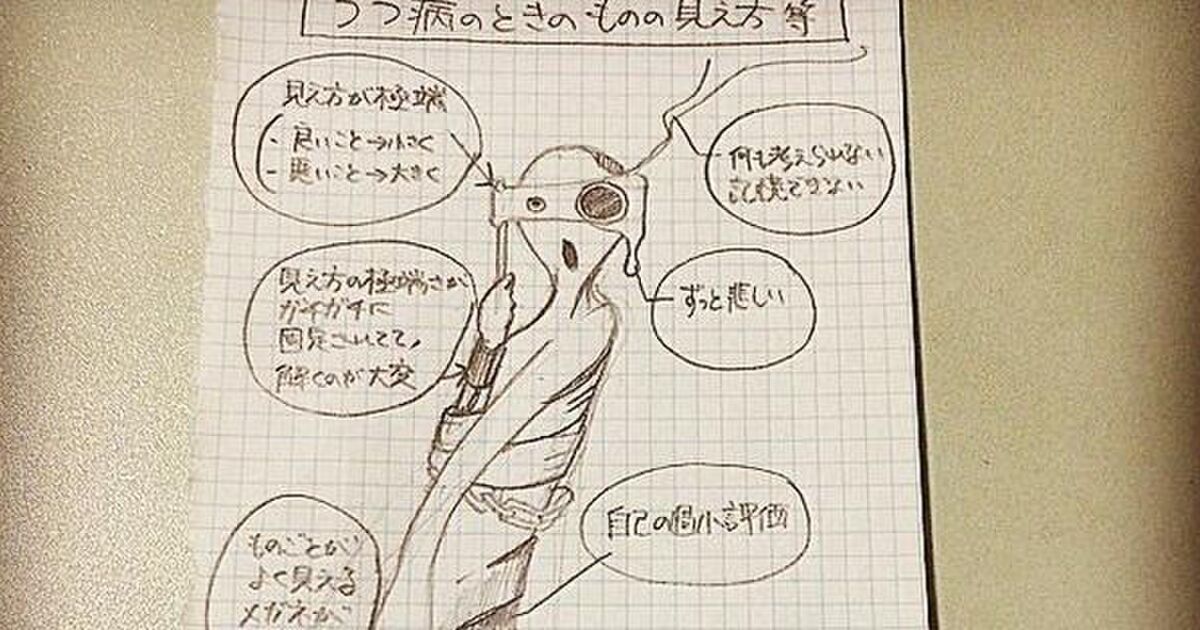 うつ病のときのものの見え方 等
見え方が極端
- 良いこと→小さく
- 悪いこと→大きく
何も考えられない
記憶できない
見え方の極端さが
ガチガチに
固定されてて、
解くのが大変
ずっと悲しい
自己の過小評価
ものごとが
よく見える
メガネが